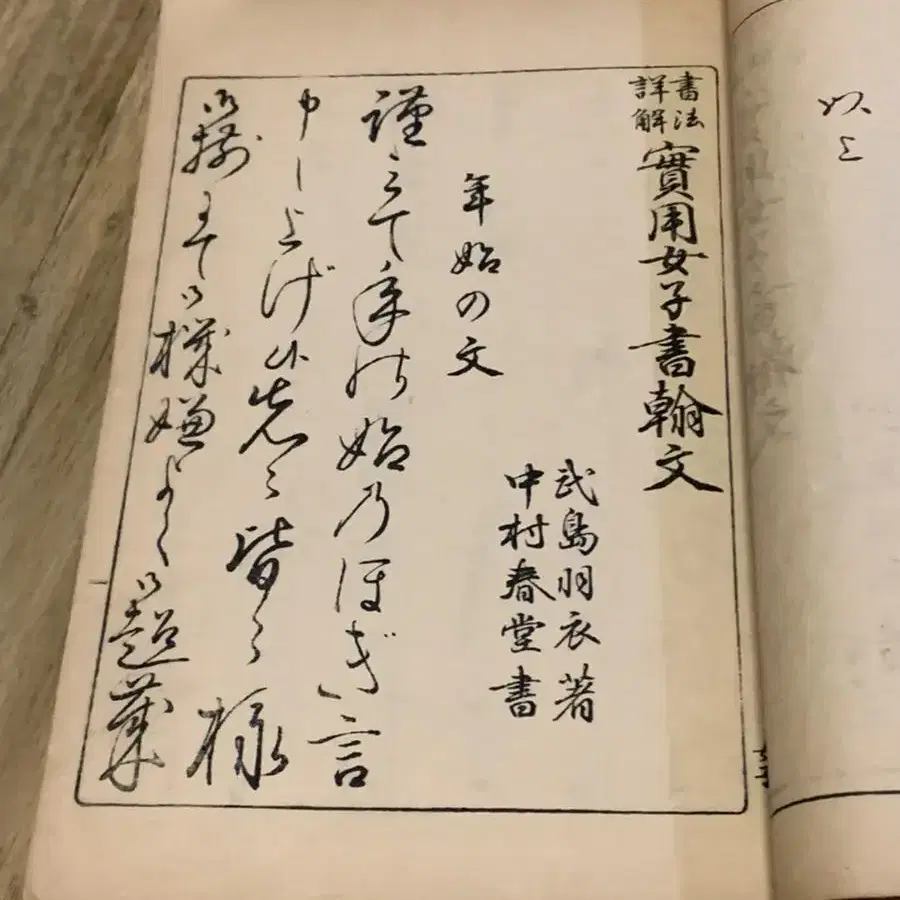 以上
書法
詳解
實用女子書翰文
武島羽衣著
中村春堂書
年始の文
謹みて年の始のほぎ言
申し上げ候先々皆々様
御揃ひて御機嫌よく御超歳